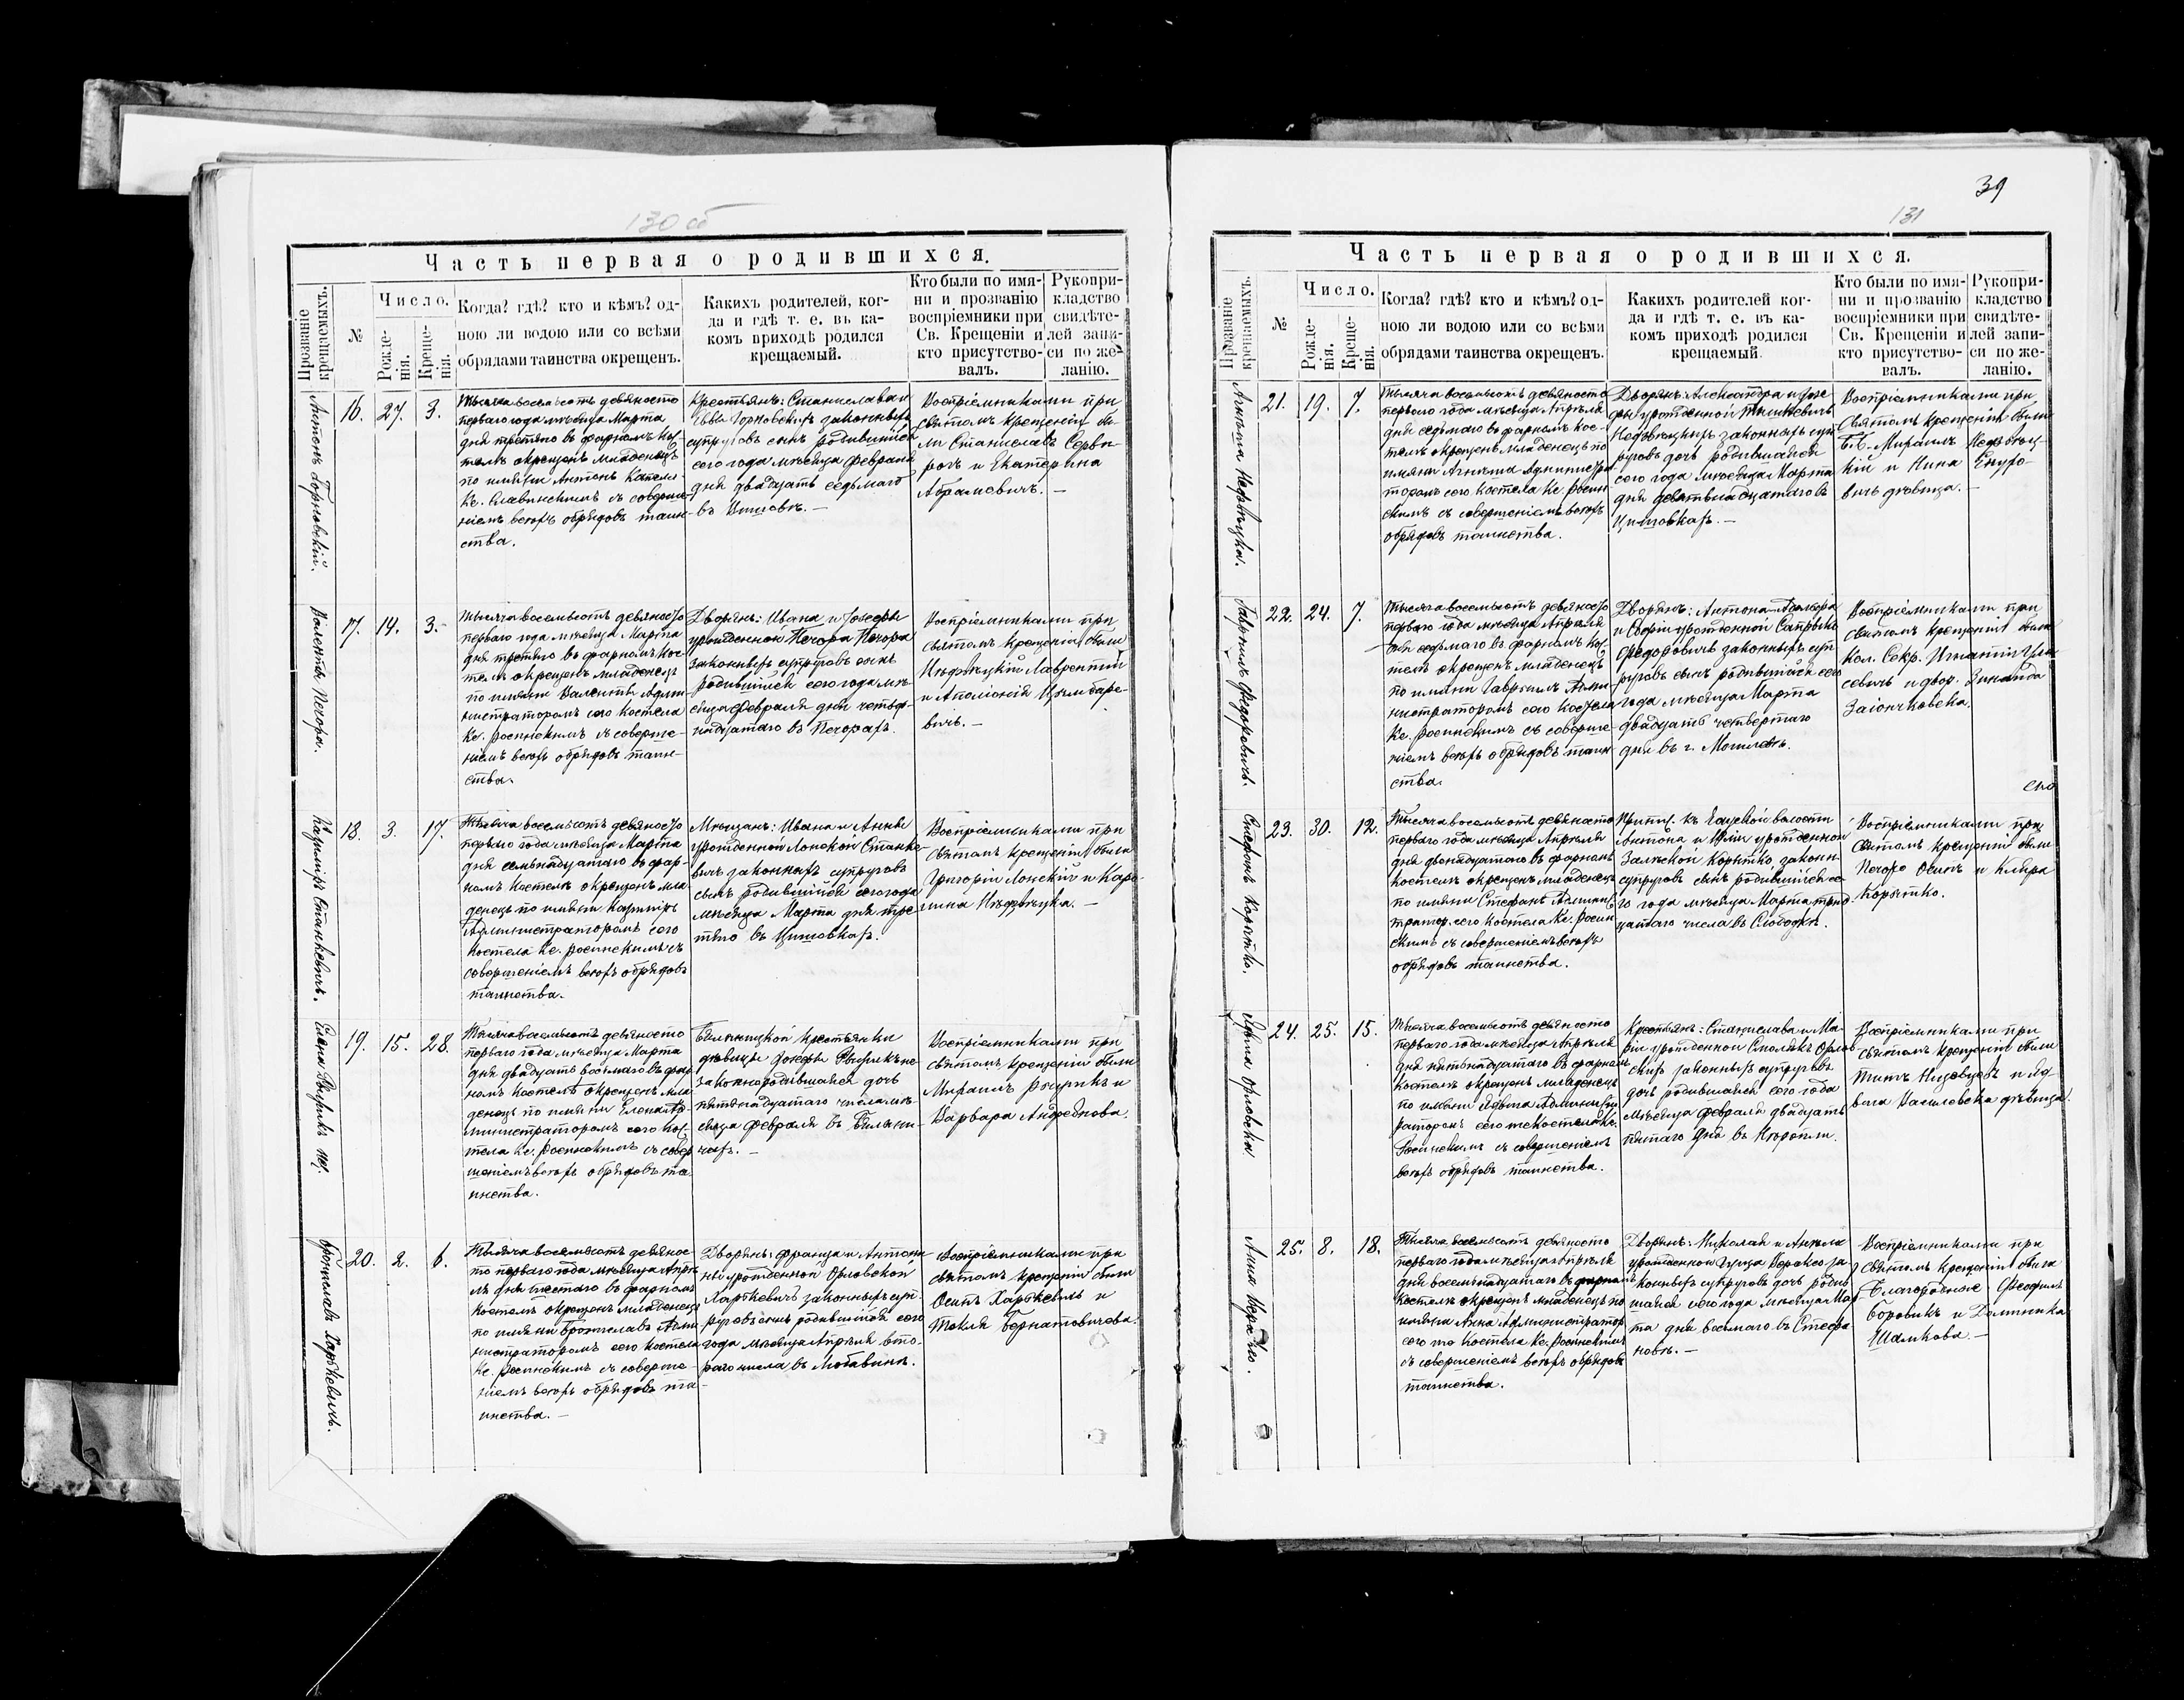 130 об
Часть первая о родившихся.
Прозваніе крещаемыхъ.
№
Число.
Рожде-
нія.
Креще-
нія.
Когда? гдѣ? кто и кѣмъ? од-
ною ли водою или со всѣми
обрядами таинства окрещенъ.
Какихъ родителей, ког-
да и гдѣ т. е. въ ка-
комъ приходѣ родился
крещаемый.
Кто были по имя-
ни и прозванію
воспріемники при
Св. Крещеніи и
кто присутство-
валъ.
Рукопри-
кладство
свидѣте-
лей запи-
си по же-
ланію.
Антонъ Горновскій.
16. 27. 3.
Тысяча восемьсотъ девяносто
перваго года мѣсяца Марта
дня третяго въ фарномъ кос-
телѣ окрещенъ младенецъ
по имяни Антонъ
Кс. съ соверше-
ніемъ всѣхъ обрядовъ таин-
ства.
Крестьянъ: Станислава и
Евы Горновскихъ законныхъ
супруговъ сынъ родившійся
сего года мѣсяца Февраля
дня двадцать седьмаго
въ
Воспріемниками при
святомъ крещеніи бы-
ли Станиславъ
и Екатерина
Абрамовичъ. —
Валентій Печора.
17. 14. 3.
Тысяча восемьсотъ девяносто
перваго года мѣсяца Марта
дня третяго въ фарномъ кос-
телѣ окрещенъ младенецъ
по имяни Валентій Адми-
нистраторомъ сего костела
Кс. Росинскимъ съ соверше-
ніемъ всѣхъ обрядовъ таин-
ства.
Дворянъ: Ивана и Іозефы
урожденной Печора Печора
законныхъ супруговъ сынъ
родившійся сего года мѣ-
сяца Февраля дня четыр-
надцатаго въ Печорахъ.
Воспріемниками при
святомъ крещеніи были
Лаврентій
и Аполонія Цымбаре-
вичъ. —
Казиміръ Станкевичъ.
18. 3. 17.
Тысяча восемьсотъ девяносто
перваго года мѣсяца Марта
дня семьнадцатаго въ фар-
номъ костелѣ окрещенъ мла-
денецъ по имяни Казиміръ
Администраторомъ сего
костела Кс. Росинскимъ съ
совершеніемъ всѣхъ обрядовъ
таинства.
Мѣщанъ: Ивана и Анны
урожденной Лонской Станке-
вичъ законныхъ супруговъ
сынъ родившійся сего года
мѣсяца Марта дня тре-
тяго въ Цишовкахъ.
Воспріемниками при
святомъ крещеніи были
Григорій Лонскій и Каро-
лина Нѣдзвѣцка. —
Елена
19. 15. 28.
Тысяча восемьсотъ девяносто
перваго года мѣсяца Марта
дня двадцать восьмаго въ фар-
номъ костелѣ окрещенъ мла-
денецъ по имяни Елена Ад-
министраторомъ сего кос-
тела Кс. Росинскимъ съ совер-
шеніемъ всѣхъ обрядовъ та-
инства.
крестьянки
дѣвицы Іозефы не-
законнородившаяся дочь
пятнадцатаго числа мѣ-
сяца Февраля въ
чахъ. —
Воспріемниками при
святомъ крещеніи были
Михаилъ и
Варвара Андреюова.
Брониславъ Харкевичъ.
20. 2. 6.
Тысяча восемьсотъ девяно-
сто перваго года мѣсяца Апрѣ-
ля дня шестаго въ фарномъ
костелѣ окрещенъ младенецъ
по имяни Брониславъ Адми-
нистраторомъ сего костела
Кс. Росинскимъ съ соверше-
ніемъ всѣхъ обрядовъ та-
инства. —
Дворянъ: Франца и Антони-
ны урожденной Орловской
Харкевичъ законныхъ суп-
руговъ сынъ родившійся сего
года мѣсяца Апрѣля вто-
раго числа въ
Воспріемниками при
святомъ крещеніи были
Осипъ Харкевичъ и
Текля Бернатовичова.
39
131
Часть первая о родившихся.
Прозваніе крещаемыхъ.
№
Число.
Рожде-
нія.
Креще-
нія.
Когда? гдѣ? кто и кѣмъ? од-
ною ли водою или со всѣми
обрядами таинства окрещенъ.
Какихъ родителей ког-
да и гдѣ т. е. въ ка-
комъ приходѣ родился
крещаемый.
Кто были по имя-
ни и прозванію
воспріемники при
Св. Крещеніи и
кто присутство-
валъ.
Рукопри-
кладство
свидѣте-
лей запи-
си по же-
ланію.
Агнешка Недзвѣцка.
21. 19. 7.
Тысяча восемьсотъ девяносто
перваго года мѣсяца Апрѣля
дня седьмаго въ фарномъ кос-
телѣ окрещенъ младенецъ по
имяни Агнешка Администра-
торомъ сего костела Кс. Росин-
скимъ съ совершеніемъ всѣхъ
обрядовъ таинства.
Дворянъ: Александра и Іозе-
фы урожденной Тышкевичъ
Недзвѣцкихъ законныхъ суп-
руговъ дочь родившаяся
сего года мѣсяца Марта
дня девятьнадцатаго въ
Цишовкахъ. —
Воспріемниками при
святомъ крещеніи были
Михаилъ Недзвѣц-
кій и Нина
вичъ дѣвица. —
Гавріилъ Федоровичъ.
22. 24. 7.
Тысяча восемьсотъ девяносто
перваго года мѣсяца Апрѣля
дня седьмаго въ фарномъ кос-
телѣ окрещенъ младенецъ
по имяни Гавріилъ Адми-
нистраторомъ сего костела
Кс. Росинскимъ съ соверше-
ніемъ всѣхъ обрядовъ таин-
ства.
Дворянъ: Антона-
и Софіи урожденной
Федоровичъ законныхъ суп-
руговъ сынъ родившійся сего
года мѣсяца Марта
двадцать четвертаго
дня въ г. Могилевѣ.
Воспріемниками при
святомъ крещеніи были
Кол. Секр. Игнатій
севичъ и двор. Зинаида
Заіончковска.
Стефанъ Корытко.
23. 30. 12.
Тысяча восемьсотъ девяносто
перваго года мѣсяца Апрѣля
дня двѣнадцатаго въ фарномъ
костелѣ окрещенъ младенецъ
по имяни Стефанъ Админис-
тратор. сего костела Кс. Росин-
скимъ съ совершеніемъ всѣхъ
обрядовъ таинства.
волости
Антона и урожденной
Залѣской Корытко законн.
супруговъ сынъ родившійся се-
го года мѣсяца Марта трид-
цатаго числа въ Слободкѣ.
Воспріемниками при
святомъ крещеніи были
Осипъ и Клара
Корытко.
Ядвига Орловска.
24. 25. 15.
Тысяча восемьсотъ девяносто
перваго года мѣсяца Апрѣля
дня пятьнадцатаго въ фарномъ
костелѣ окрещенъ младенецъ
по имяни Ядвига Админист-
раторомъ сего же костела Кс.
Росинскимъ съ совершеніемъ
всѣхъ обрядовъ таинства.
Крестьянъ: Станислава и Ма-
ріи урожденной Орлов-
скихъ законныхъ супруговъ
дочь родившаяся сего года
мѣсяца Февраля двадцать
пятаго дня въ
Воспріемниками при
святомъ крещеніи были
Титъ и Яд-
вига Василевска дѣвица.
Анна
25. 8. 18.
Тысяча восемьсотъ девяносто
перваго года мѣсяца Апрѣля
дня восемьнадцатаго въ фарномъ
костелѣ окрещенъ младенецъ по
имяни Анна Администратор.
сего же костела Кс. Росинскимъ
съ совершеніемъ всѣхъ обрядовъ
таинства.
Дворянъ: Николая и Анели
урожденной за-
конныхъ супруговъ дочь родив-
шаяся сего года мѣсяца Мар-
та дня восьмаго въ Стефа-
новкѣ. —
Воспріемниками при
святомъ крещеніи были
Благородные: Феофилъ
Боровикъ и Доминика
Шалкова. —